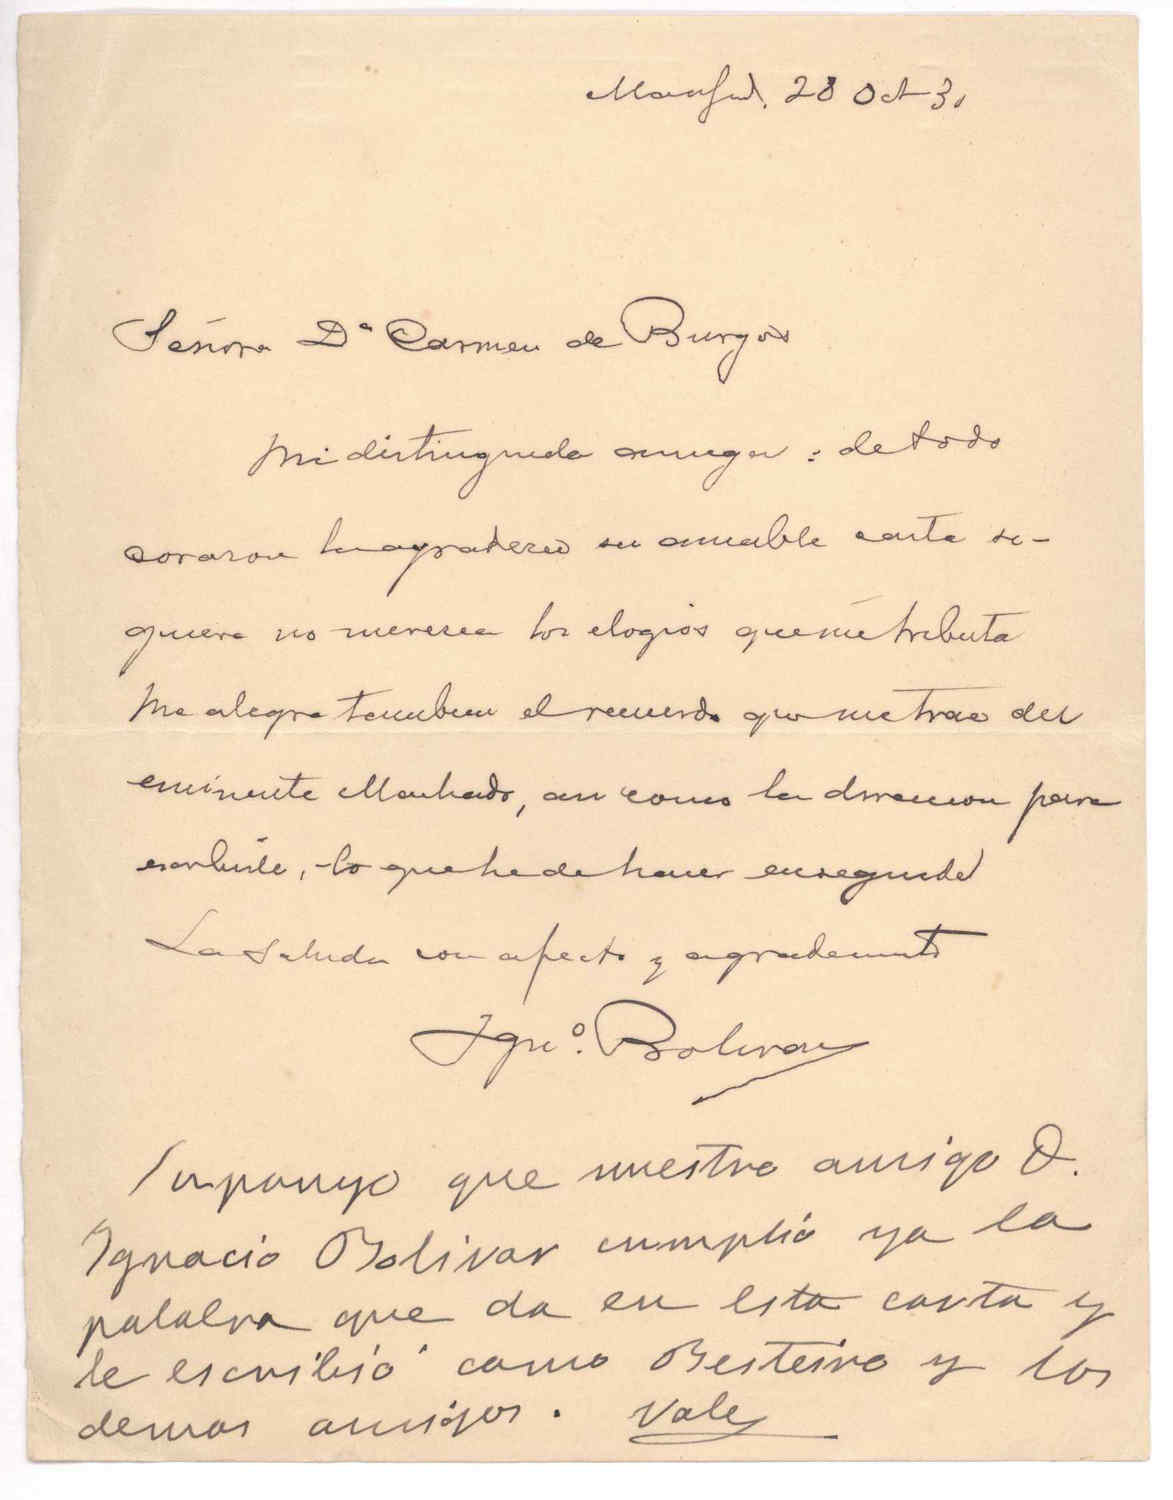 Madrid, 28 Oct 31
Señora Dª Carmen de Burgos
Mi distinguida amiga: de todo
corazon la agradezco su amable carta si-
quiera no merezca los elogios que me tributa
Me alegra tambien el recuerdo que me trae del
eminente Machado, asi como la direccion para
escribirle, lo que he de hacer enseguida
La saluda con afecto y agradecimto
Igno. Bolivar
Supongo que nuestro amigo D.
Ignacio Bolivar cumplió ya la
palabra que da en esta carta y
le escribió como Besteiro y los
demas amigos. Vale